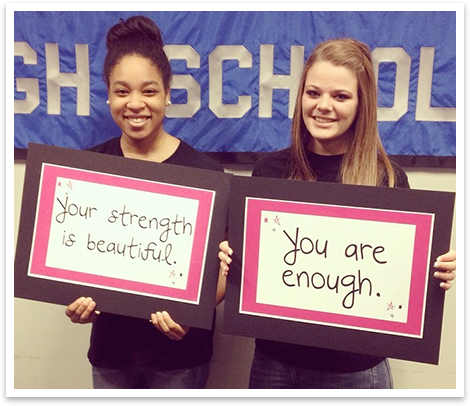 GH SCHOOL
Your strength
is beautiful.
You are
enough.